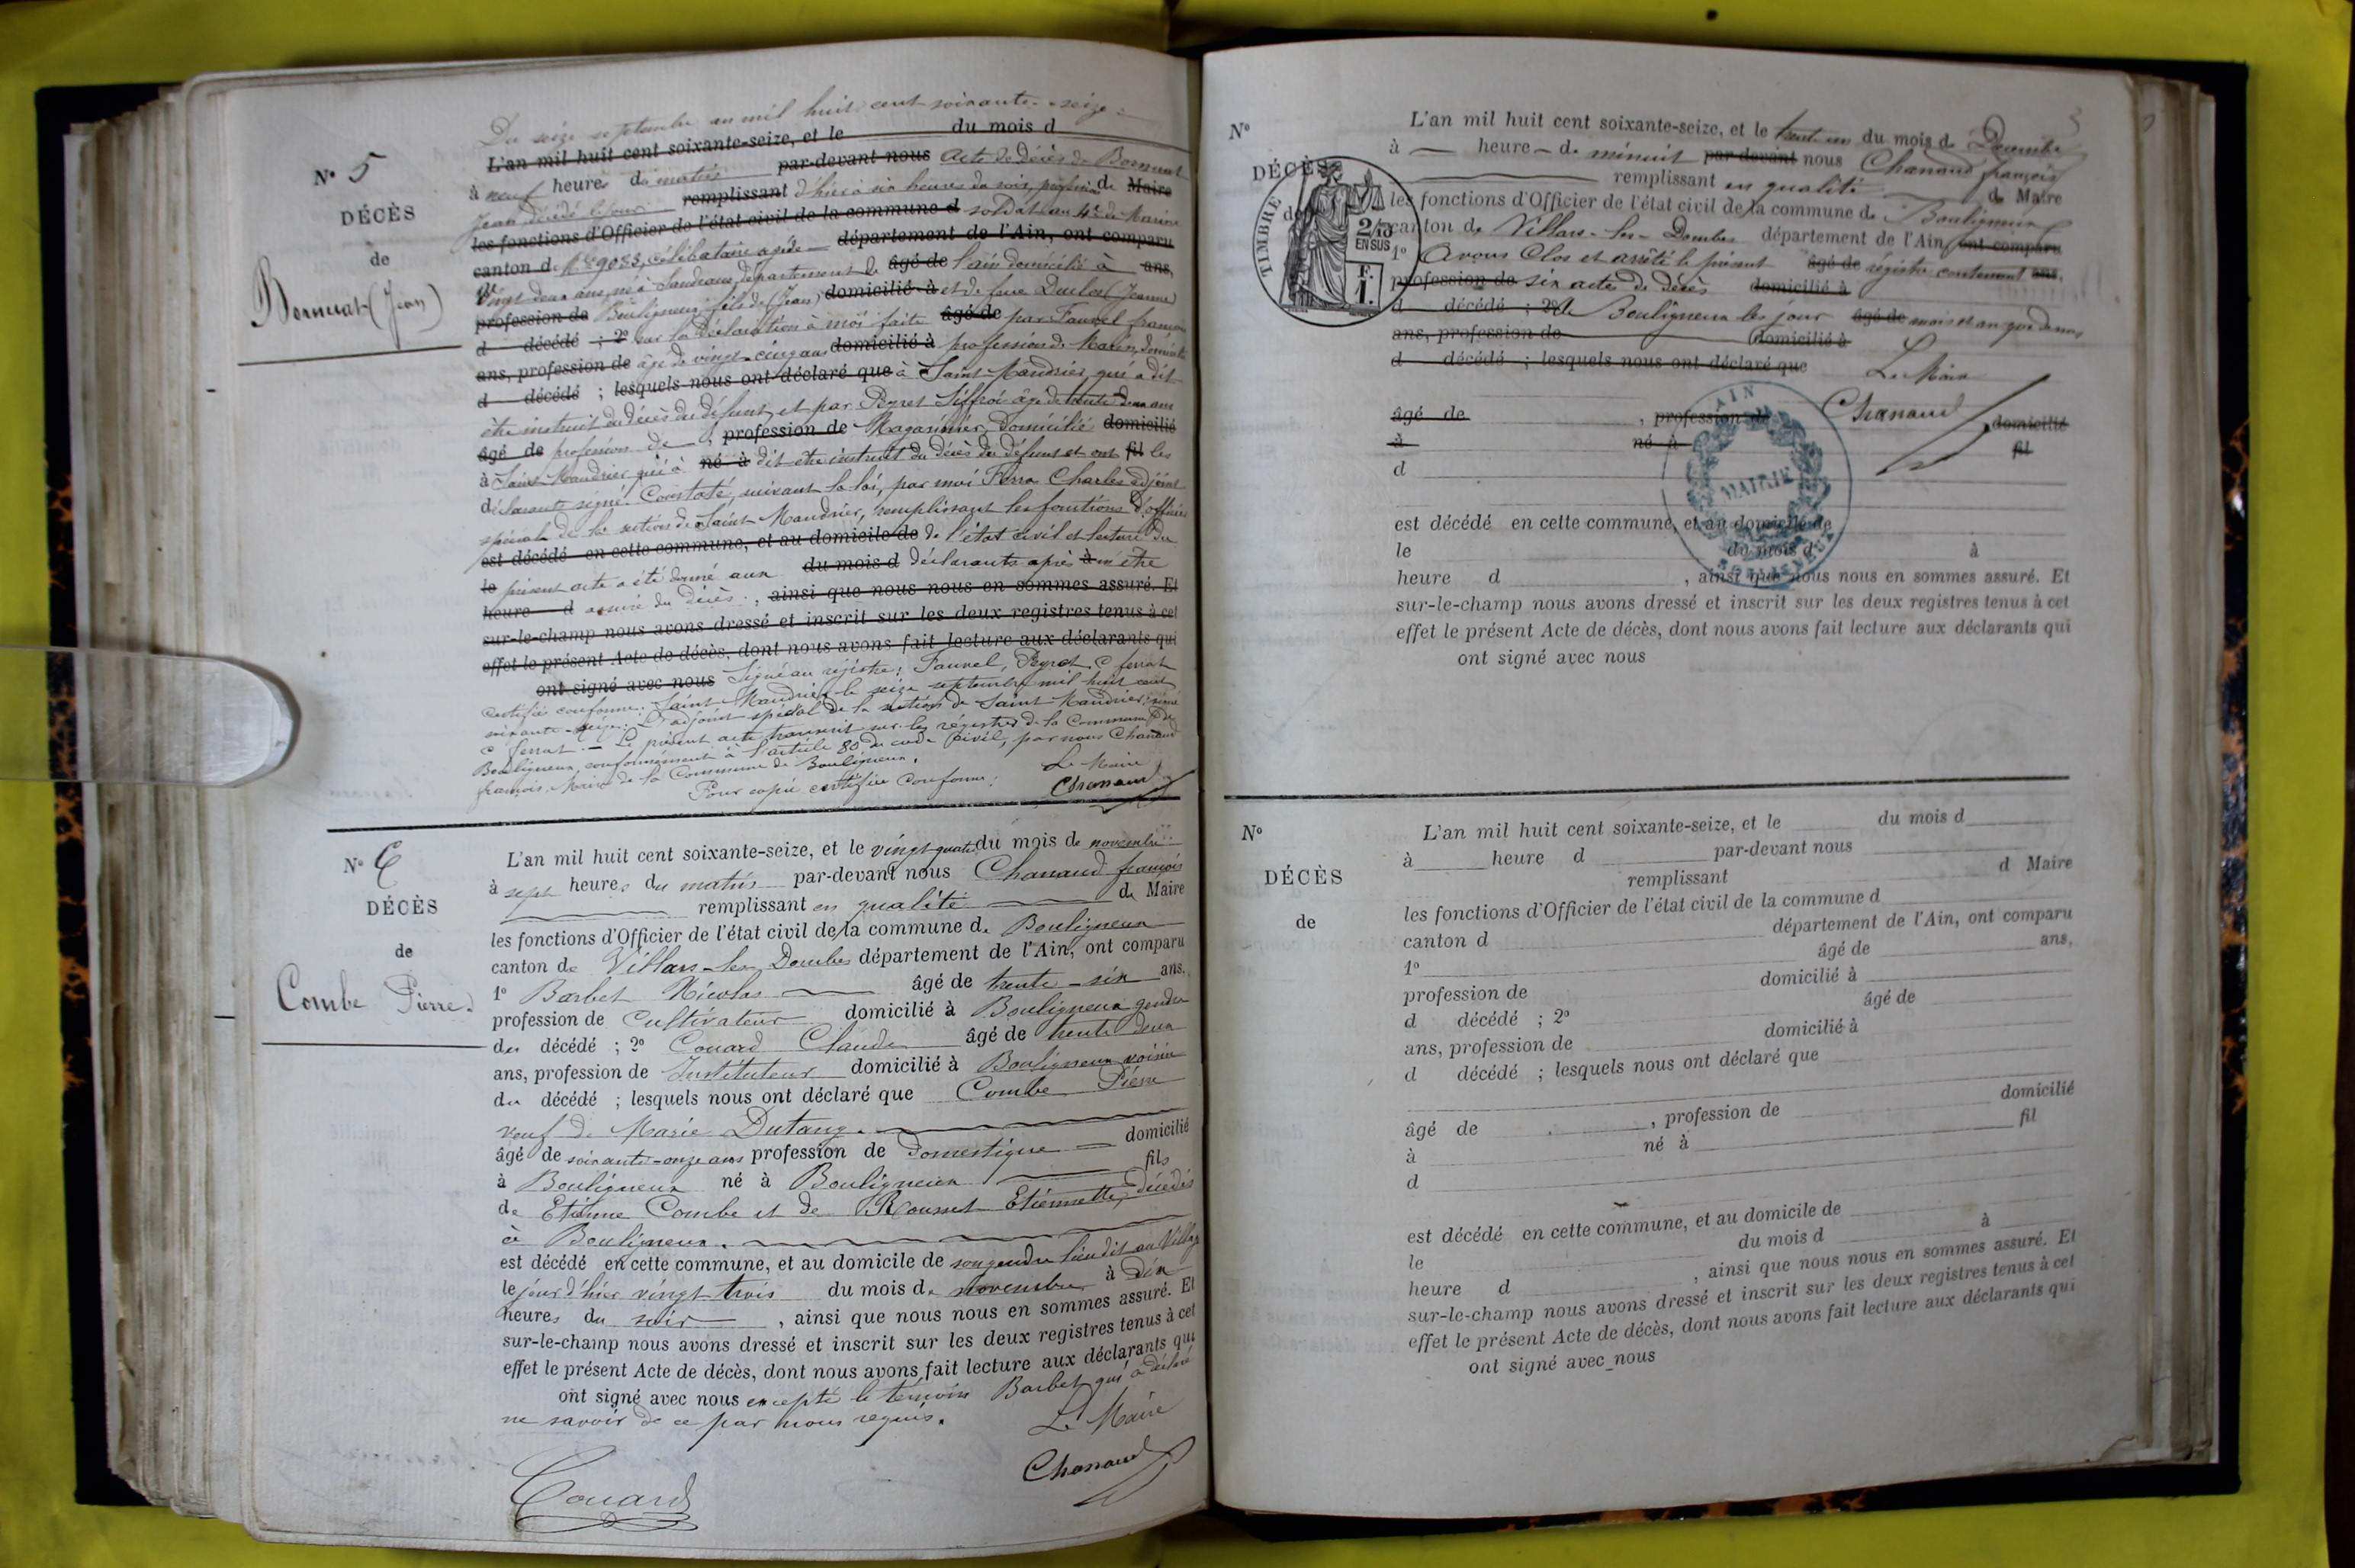 Du seize septembre an mil huit cent soixante-seize
L'an mil huit cent soixante-seize, et le du mois d
N° 5
à neuf heures du matin par-devant nous Acte de décès de Bornuat
Jean décédé remplissant d'hier à six heures du soir, profession de Maire
DÉCÈS
les fonctions d'Officier de l'état civil de la commune d soldat au 4e de Marine
canton d N° 9083, célibataire agé de département de l'Ain, ont comparu
de
vingt deux ans, né à Sandrans, département de âgé de l'ain domicilié à ans,
Bornuat (Jean)
profession de Bouligneux fils de (Jean) domicilié à et de Duclos (Jeanne)
d décédé ; 2° sur la déclaration à moi faite âgé de par Fauvel françois
ans, profession de âgé de vingt-cinq ans domicilié à profession de Marin, domicilié
d décédé ; lesquels nous ont déclaré que à Saint Mandrier, qui a dit
être instruit du décès du défunt, et par Peyret Siffroi âgé de trente deux ans
âgé de profession de , profession de Magasinier, domicilié domicilié
à Saint Mandrier qui à né à dit être instruit du décès du défunt et ont fil les
déclarants signé. Constaté, suivant la loi, par moi Ferra Charles adjoint
spécial de la section de Saint Mandrier, remplissant les fonctions d'officier
est décédé en cette commune, et au domicile de de l'état civil et lecture du
le présent acte a été donné aux du mois d déclarants après à m'être
heure d assuré du décès. , ainsi que nous nous en sommes assuré. Et
sur-le-champ nous avons dressé et inscrit sur les deux registres tenus à cet
effet le présent Acte de décès, dont nous avons fait lecture aux déclarants qui
ont signé avec nous Signé au registre: Fauvel, Peyret, C ferrat
Certifié conforme: Saint Mandrier le seize septembre mil huit cent
soixante-seize. L'adjoint spécial de la section de Saint Mandrier: signé
C ferrat. — Le présent acte transcrit sur les régistres de la Commune de
Bouligneux, conformément à l'article 80 du code civil, par nous Chanaud
françois, Maire de la Commune de Bouligneux.
Pour copie certifiée conforme: Le Maire
Chanaud
N° 6
L'an mil huit cent soixante-seize, et le vingt quatre du mois de novembre
à sept heures du matin par-devant nous Chanaud françois
DÉCÈS
remplissant en qualité de Maire
les fonctions d'Officier de l'état civil de la commune de Bouligneux
de
canton de Villars-les-Dombes département de l'Ain, ont comparu
Combe Pierre
1° Barbet Nicolas âgé de trente-six ans,
profession de Cultivateur domicilié à Bouligneux gendre
du décédé ; 2° Couard Claude âgé de trente deux
ans, profession de Instituteur domicilié à Bouligneux voisin
du décédé ; lesquels nous ont déclaré que Combe Pierre
veuf de Marie Dutang.
âgé de soixante-onze ans profession de Domestique domicilié
à Bouligneux né à Bouligneux fils
de Etienne Combe et de Rousset Etiennette, décédés
à Bouligneux.
est décédé en cette commune, et au domicile de son gendre lieu dit au Village
le jour d'hier vingt trois du mois de novembre à dix
heures du soir , ainsi que nous nous en sommes assuré. Et
sur-le-champ nous avons dressé et inscrit sur les deux registres tenus à cet
effet le présent Acte de décès, dont nous avons fait lecture aux déclarants qui
ont signé avec nous excepté le témoin Barbet qui a déclaré
ne savoir de ce par nous requis.
Le Maire
Chanaud
Couard
N°
L'an mil huit cent soixante-seize, et le trente un du mois de Décembre
à heure de minuit par-devant nous Chanaud françois
DÉCÈS
remplissant en qualité de Maire
les fonctions d'Officier de l'état civil de la commune de Bouligneux
de
TIMBRE
2/10
EN SUS
F.
1.
canton de Villars-les-Dombes département de l'Ain, ont comparu
1° Avons Clos et arrêté le présent âgé de régistre contenant ans,
profession de six actes de décès domicilié à
d décédé ; 2° A Bouligneux les jour âgé de mois et an que dessus
ans, profession de domicilié à
d décédé ; lesquels nous ont déclaré que
Le Maire
Chanaud
âgé de , profession de domicilié
à né à fil
d
AIN
MAIRIE
BOULIGNEUX
est décédé en cette commune, et au domicile de
le du mois d à
heure d , ainsi que nous nous en sommes assuré. Et
sur-le-champ nous avons dressé et inscrit sur les deux registres tenus à cet
effet le présent Acte de décès, dont nous avons fait lecture aux déclarants qui
ont signé avec nous
N°
L'an mil huit cent soixante-seize, et le du mois d
à heure d par-devant nous
DÉCÈS
remplissant d Maire
les fonctions d'Officier de l'état civil de la commune d
de
canton d département de l'Ain, ont comparu
1° âgé de ans,
profession de domicilié à
d décédé ; 2° âgé de
ans, profession de domicilié à
d décédé ; lesquels nous ont déclaré que
âgé de , profession de domicilié
à né à fil
d
est décédé en cette commune, et au domicile de
le du mois d à
heure d , ainsi que nous nous en sommes assuré. Et
sur-le-champ nous avons dressé et inscrit sur les deux registres tenus à cet
effet le présent Acte de décès, dont nous avons fait lecture aux déclarants qui
ont signé avec nous